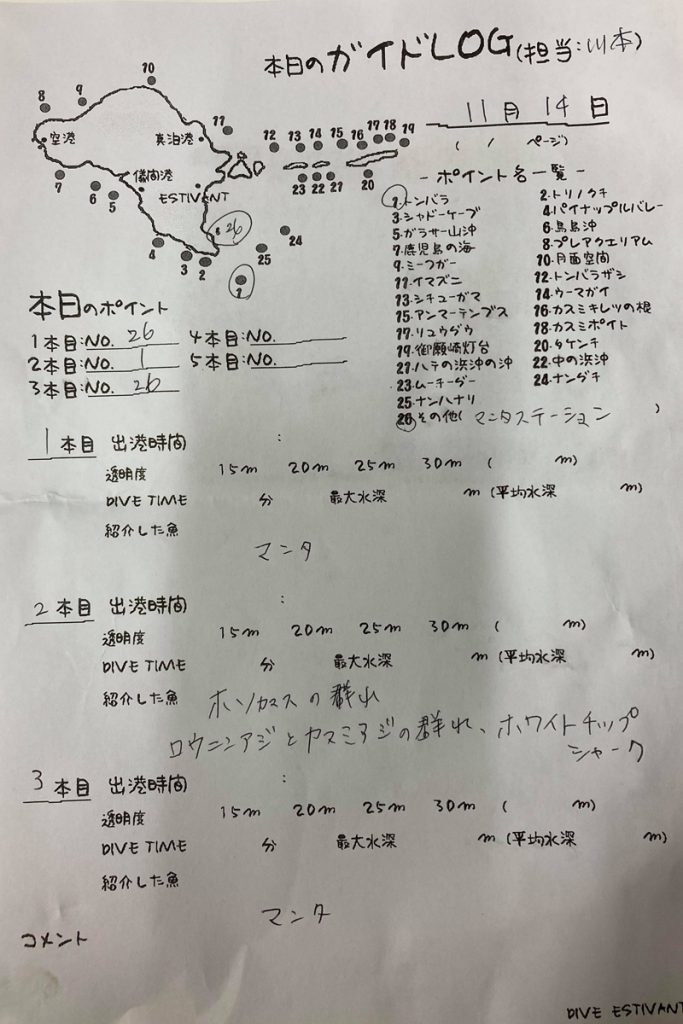 本日のガイドLOG(担当:川本)
11月 14日
( / ページ)
10
9
8
空港
真泊港
11
12 13 14 15 16 17 18 19
儀間港
7
6
5
ESTIVANT
23 22 21
20
26
24
4
3
2
25
1
- ポイント名一覧 -
1.トンバラ 2.トリノクチ
3.シャドーケーブ 4.パイナップルバレー
5.ガラサー山沖 6.鳥島沖
7.鹿児島の海 8.プレアクエリアム
9.ミーフガー 10.月面空間
11.イマズニ 12.トンバラザシ
13.シチューガマ 14.ウーマガイ
15.アンマーテンプス 16.カスミキレツの根
17.リュウグウ 18.カスミポイト
19.御願崎灯台 20.タケンチ
21.ハテの浜沖の沖 22.中の浜沖
23.ムーチーダー 24.ナングチ
25.ナンハナリ
26.その他( マンタステーション )
本日のポイント
1本目:NO. 26 4本目:NO.
2本目:NO. 1 5本目:NO.
3本目:NO. 26
1本目 出港時間 :
透明度 15m 20m 25m 30m ( m)
DIVE TIME 分 最大水深 m (平均水深 m)
紹介した魚
マンタ
2本目 出港時間 :
透明度 15m 20m 25m 30m ( m)
DIVE TIME 分 最大水深 m (平均水深 m)
紹介した魚 ホソカマスの群れ
ロウニンアジとカスミアジの群れ、ホワイトチップ
シャーク
3本目 出港時間 :
透明度 15m 20m 25m 30m ( m)
DIVE TIME 分 最大水深 m (平均水深 m)
紹介した魚
マンタ
コメント
DIVE ESTIVANT